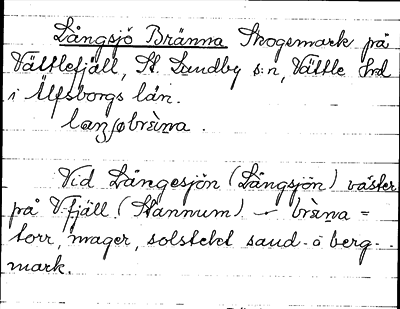 Långsjö Bränna Skogsmark på
Vättlefjäll, St. Lundby s:n, Vättle hrd
i Älfsborgs län.
Vid Långesjön (Långsjön) väster
på V.fjäll (Stannum) – bräna =
torr, mager, solstekt sand- o berg-
mark.